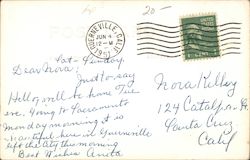 20-
GUERNEVILLE, CALIF.
JUN 4
12-M
POST
Sat - Sunday.
Dear Nora;
Just to say
Hello, will be home Tues
eve. Going to Sacramento
Monday morning it is
beautiful here in Guerneville
left the city this morning
Best Wishes Anita
Nora Kelley
124 Catalpa St
Santa Cruz
Calif